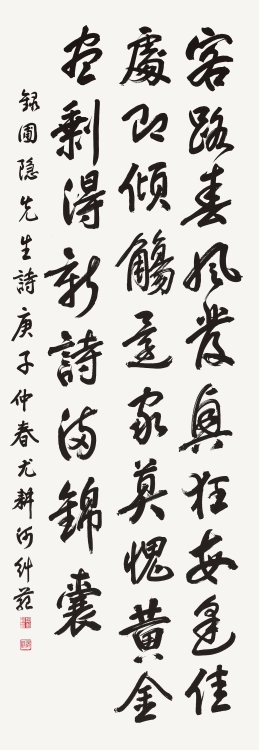 客路春風發興狂每逢佳
處即傾觴還家莫愧黃金
盡剩得新詩滿錦囊
錄圃隐先生詩庚子仲春尤耕河